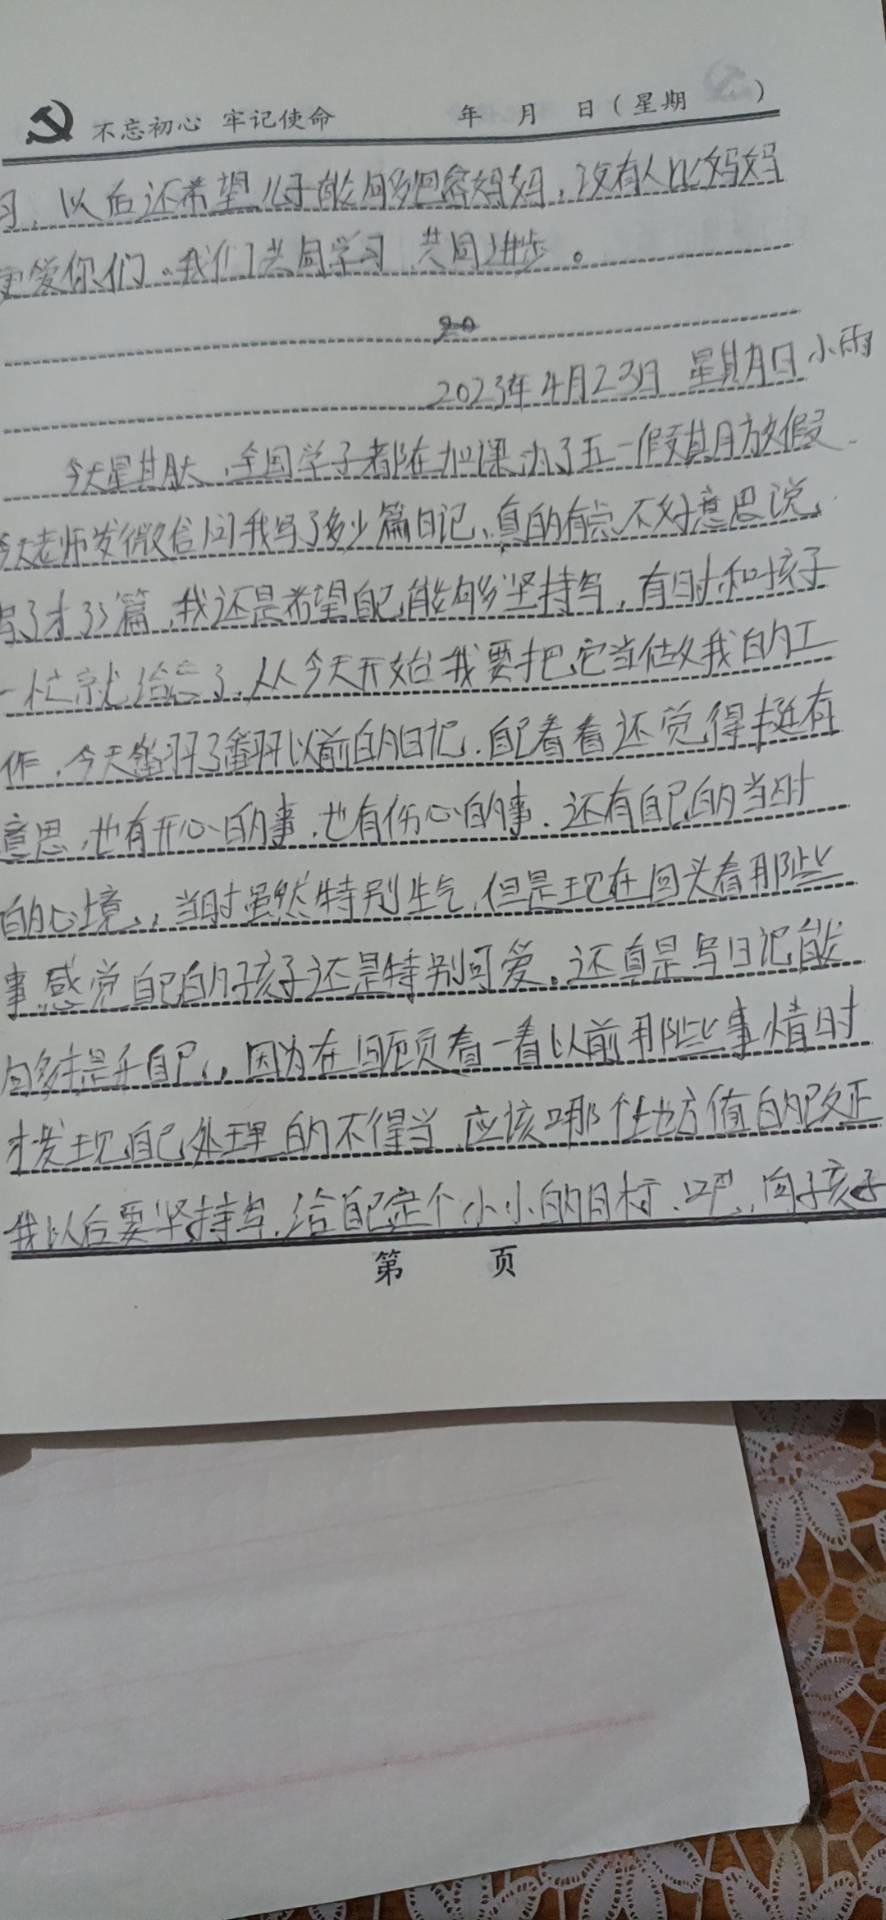 不忘初心 牢记使命 年 月 日（星期 ）
习，以后还希望儿子能够包容妈妈，没有人比妈妈
更爱你们。我们共同学习 共同进步。
2023年4月23日 星期日 小雨
今天星期天，全国学子都在加课，为了五一假期放假
今天老师发微信问我写了多少篇日记，真的有点不好意思说，
写了才33篇，我还是希望自己能够坚持写，有时和孩子
一忙就给忘了，从今天开始我要把它当做我的工
作，今天翻了翻以前的日记，自己看看还觉得挺有
意思，也有开心的事，也有伤心的事，还有自己的当时
的心境，，当时虽然特别生气，但是现在回头看那些
事，感觉自己的孩子还是特别可爱。还真是写日记能
够提升自己，，因为在回顾看一看以前那些事情时
才发现自己处理的不得当，应该哪个地方值的改正
我以后要坚持写，给自己定个小小的目标，，向孩子
第 页